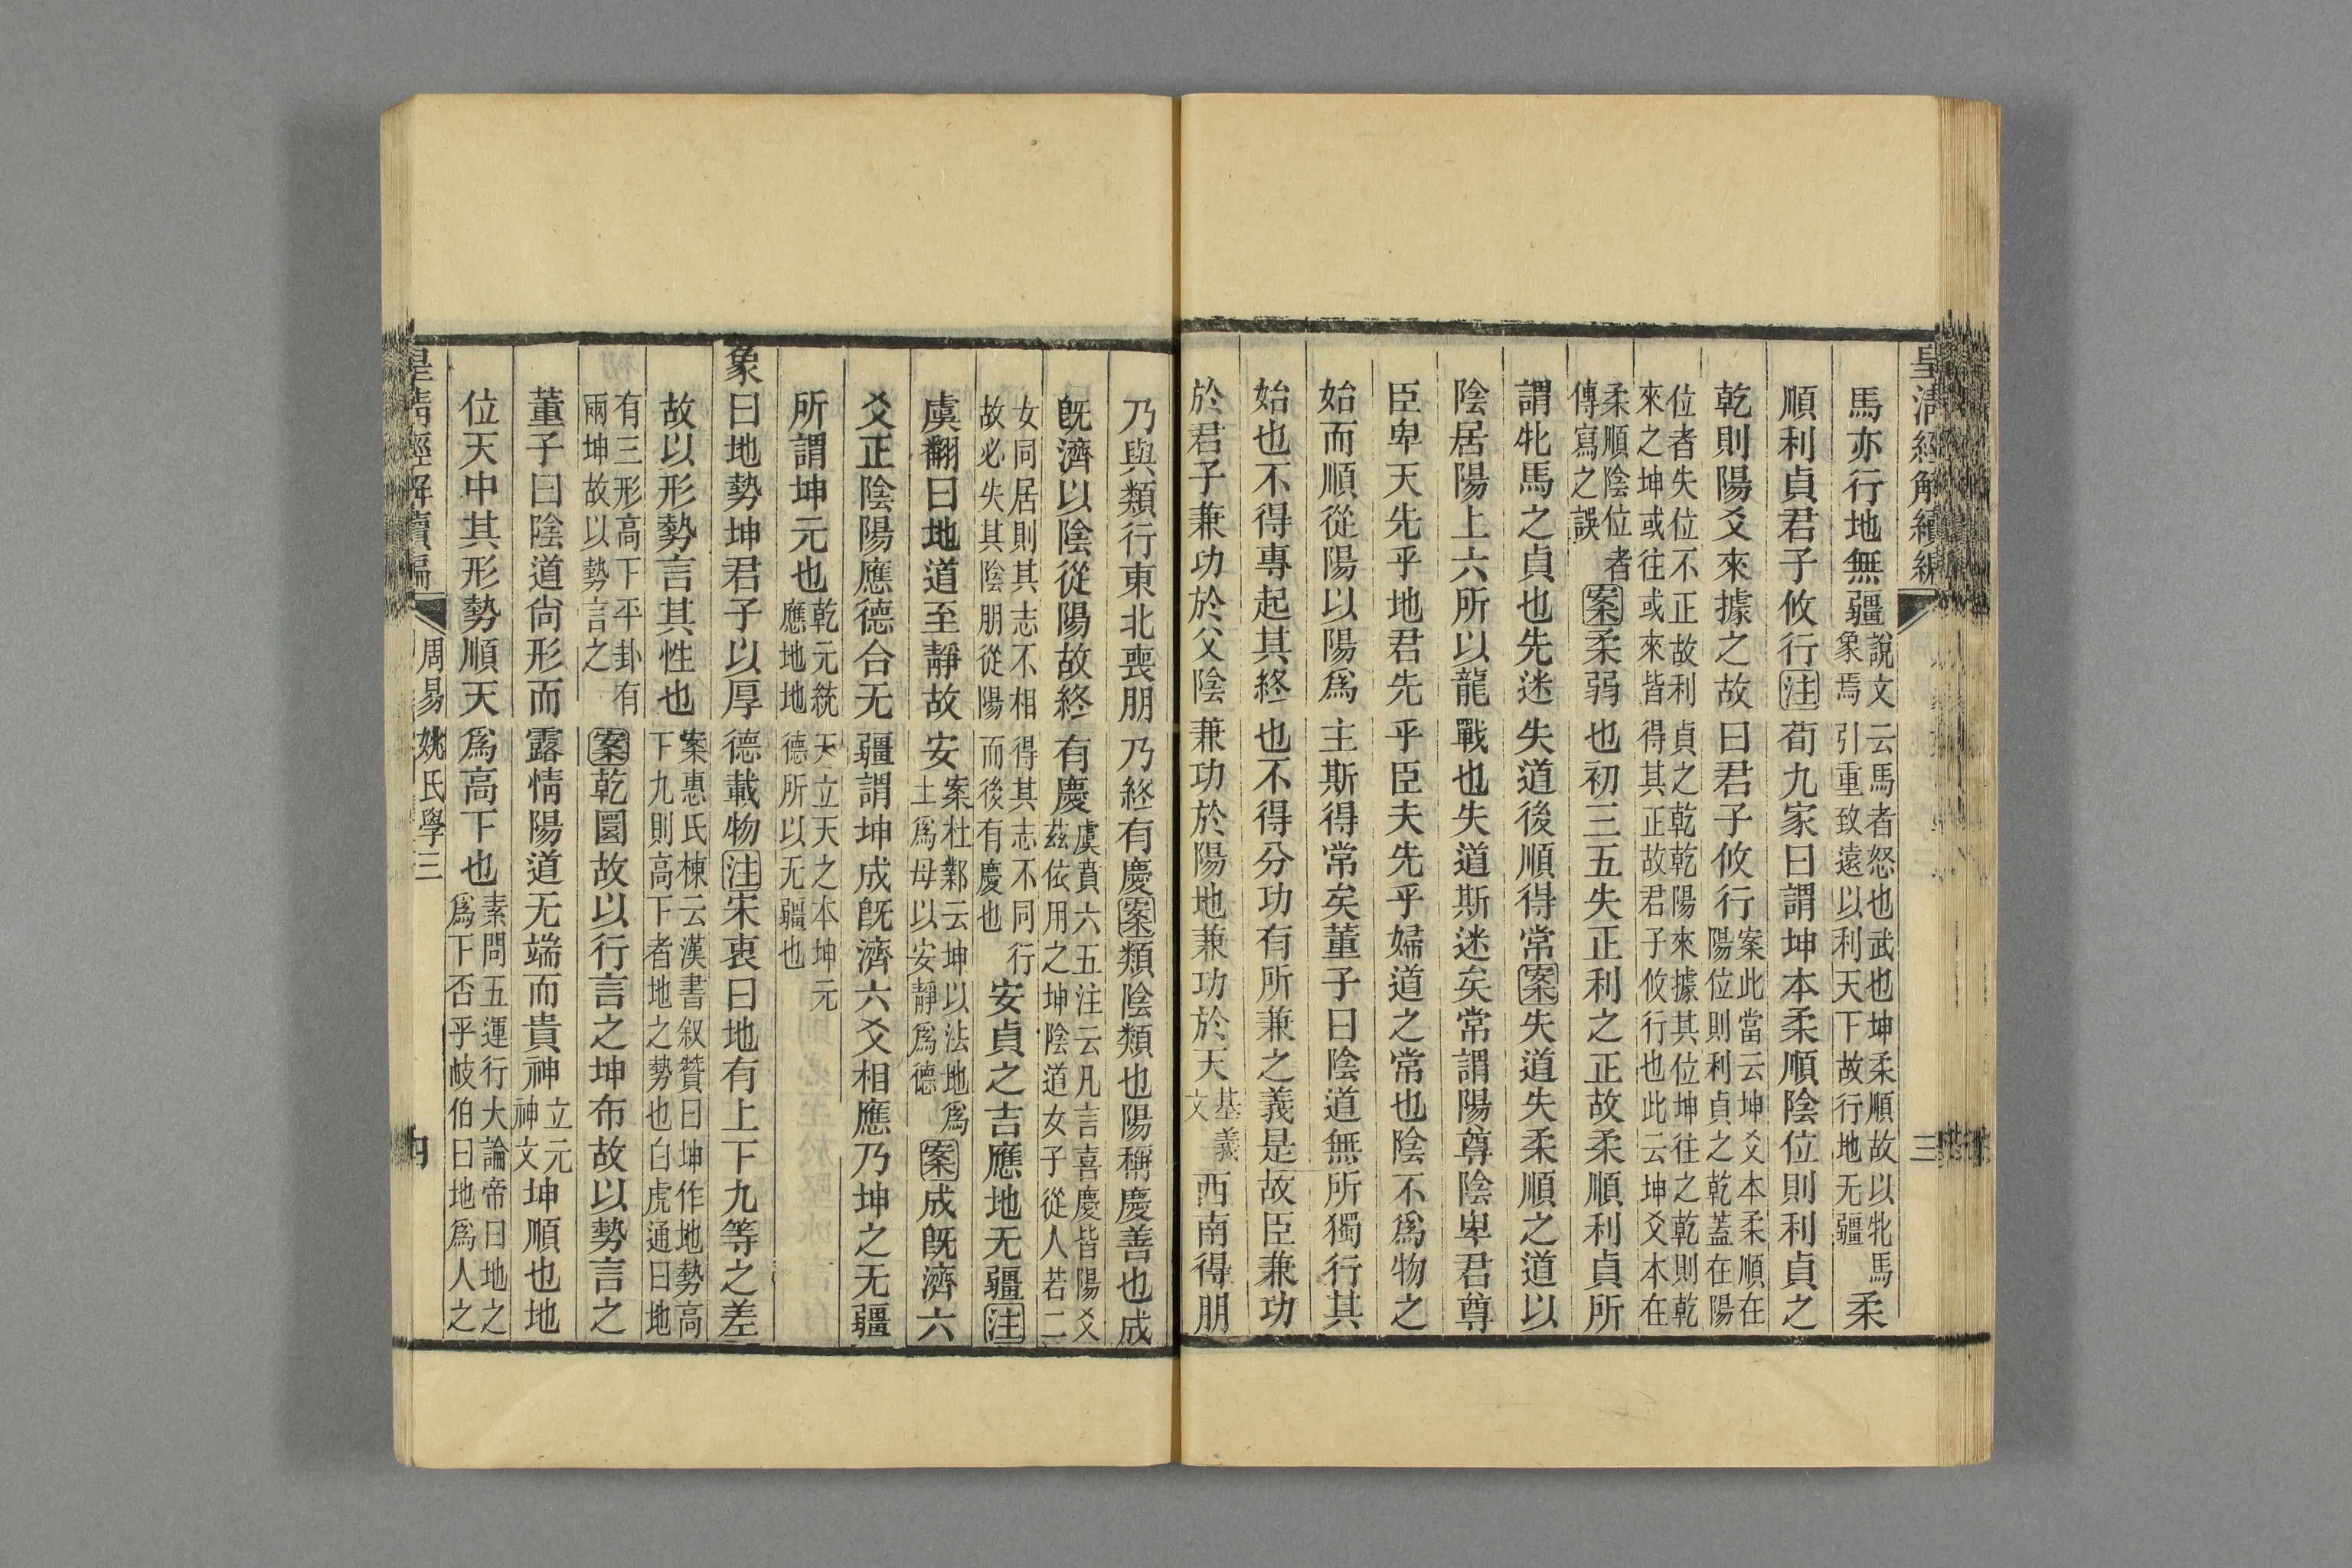 皇清經解續編
三
馬亦行地無疆說文云馬者怒也武也坤柔順故以牝馬象焉引重致遠以利天下故行地无疆柔
順利貞君子攸行注荀九家曰謂坤本柔順陰位則利貞之
乾則陽爻來據之故曰君子攸行案此當云坤爻本柔順在陽位則利貞之乾蓋在陽
位者失位不正故利貞之乾乾陽來據其位坤往之乾則乾來之坤或往或來皆得其正故君子攸行也此云坤爻本在
柔順陰位者傳寫之誤案柔弱也初三五失正利之正故柔順利貞所
謂牝馬之貞也先迷失道後順得常案失道失柔順之道以
陰居陽上六所以龍戰也失道斯迷矣常謂陽尊陰卑君尊
臣卑天先乎地君先乎臣夫先乎婦道之常也陰不爲物之
始而順從陽以陽爲主斯得常矣董子曰陰道無所獨行其
始也不得專起其終也不得分功有所兼之義是故臣兼功
於君子兼功於父陰兼功於陽地兼功於天基義文西南得朋
乃與類行東北喪朋乃終有慶案類陰類也陽稱慶善也成
旣濟以陰從陽故終有慶虞賁六五注云凡言喜慶皆陽爻茲依用之坤陰道女子從人若二
女同居則其志不相得其志不同行故必失其陰朋從陽而後有慶也安貞之吉應地无疆注
虞翻曰地道至靜故安案杜鄴云坤以法地爲土爲母以安靜爲德案成旣濟六
爻正陰陽應德合无疆謂坤成旣濟六爻相應乃坤之无疆
所謂坤元也乾元統天立天之本坤元應地地德所以无疆也
象曰地勢坤君子以厚德載物注宋衷曰地有上下九等之差
故以形勢言其性也案惠氏棟云漢書叙贊曰坤作地勢高下九則高下者地之勢也白虎通曰地
有三形高下平卦有兩坤故以勢言之案乾圜故以行言之坤布故以勢言之
董子曰陰道尙形而露情陽道无端而貴神立元神文坤順也地
位天中其形勢順天爲高下也素問五運行大論帝曰地之爲下否乎岐伯曰地爲人之
皇清經解續編
周易姚氏學三
四